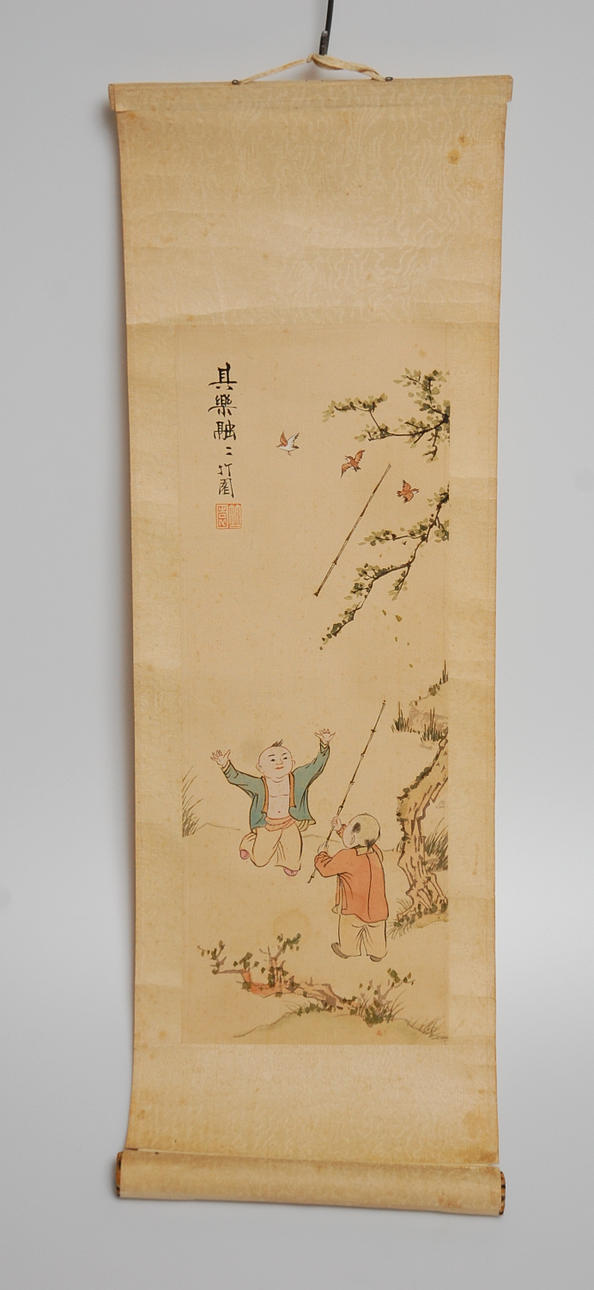 其樂融〻竹園